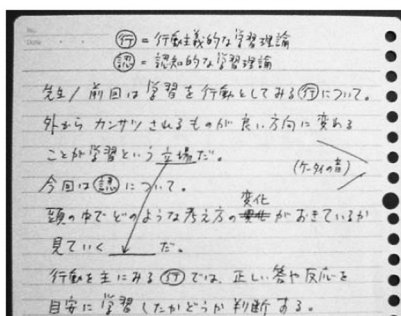 ㊗行 = 行動主義的な学習理論
㊗認 = 認知的な学習理論
先生/前回は学習を行動としてみる行について。
外から カンサツされるものが良い方向に変わる
ことが学習という立場だ。
(ケータイの音)
今回は認について。
変化
頭の中でどのような考え方のがおきているか
見ていく だ。
行動を主にみる行では、正しい答や反応を
目安に学習したかどうか判断する。